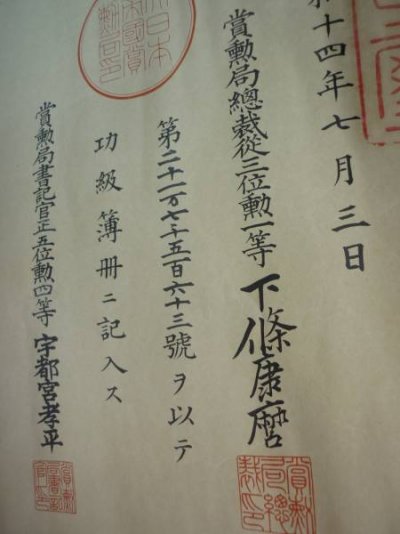 和十四年七月三日
賞勲局總裁從三位勲一等 下條康麿
賞勲局總裁印
第二十一万七千五百六十三號ヲ以テ
功級簿冊ニ記入ス
賞勲局書記官正五位勲四等 宇都宮孝平